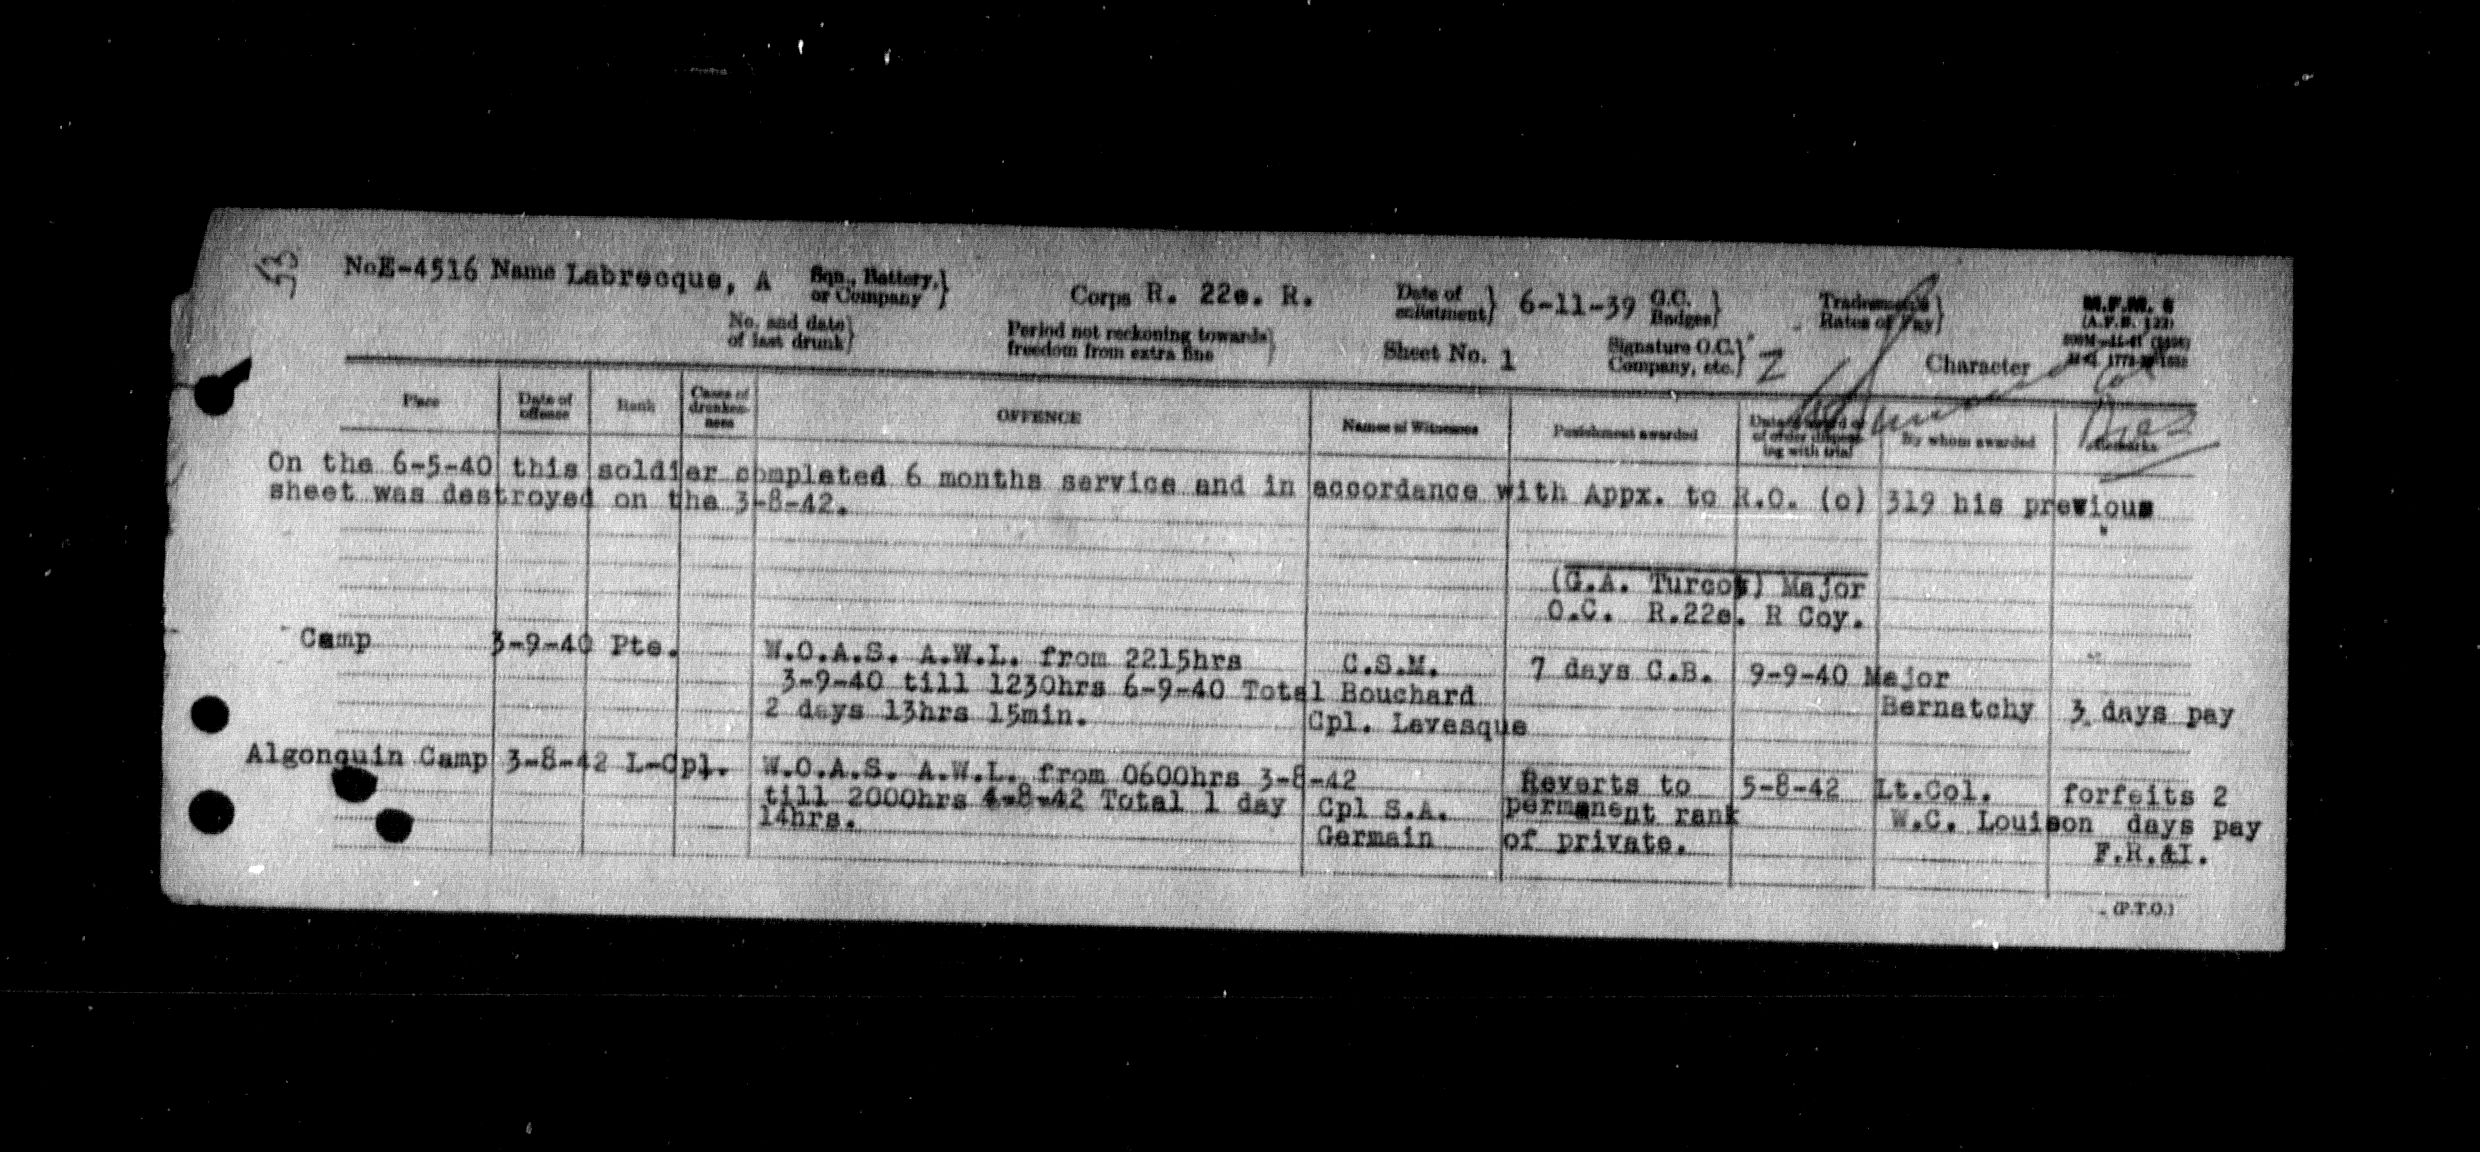 53
No E-4516 Name Labrecque, A Sqn., Battery, or Company Corps R. 22e. R. Date of enlistment 6-11-39 G.C. Badges Tradesmen's Rates of Pay M.F.M. 6
(A.F.B. 122)
No. and date of last drunk Period not reckoning towards freedom from extra fine Sheet No. 1 Signature O.C. Company, etc. Character
Place Date of offence Rank Cases of drunkenness OFFENCE Names of Witnesses Punishment awarded Date of award or of order dispensing with trial By whom awarded Remarks
On the 6-5-40 this soldier completed 6 months service and in accordance with Appx. to R.O. (o) 319 his previous
sheet was destroyed on the 3-8-42.
(G.A. Turcot) Major
O.C. R.22e. R Coy.
Camp 3-9-40 Pte. W.O.A.S. A.W.L. from 2215hrs C.S.M. 7 days C.B. 9-9-40 Major
3-9-40 till 1230hrs 6-9-40 Total Bouchard Bernatchy 3 days pay
2 days 13hrs 15min. Cpl. Levesque
Algonquin Camp 3-8-42 L-Cpl. W.O.A.S. A.W.L. from 0600hrs 3-8-42 Reverts to 5-8-42 Lt.Col. forfeits 2
till 2000hrs 4-8-42 Total 1 day Cpl S.A. permanent rank W.C. Louison days pay
14hrs. Germain of private. F.R.&I.
(P.T.O.)